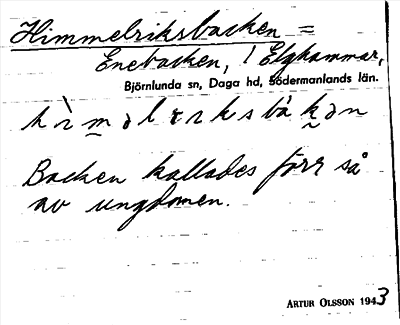 Himmelriksbacken =
Enebacken, i Elghammar,
Björnlunda sn, Daga hd, Södermanlands län.
Backen kallades förr så
av ungdomen.
ARTUR OLSSON 1943